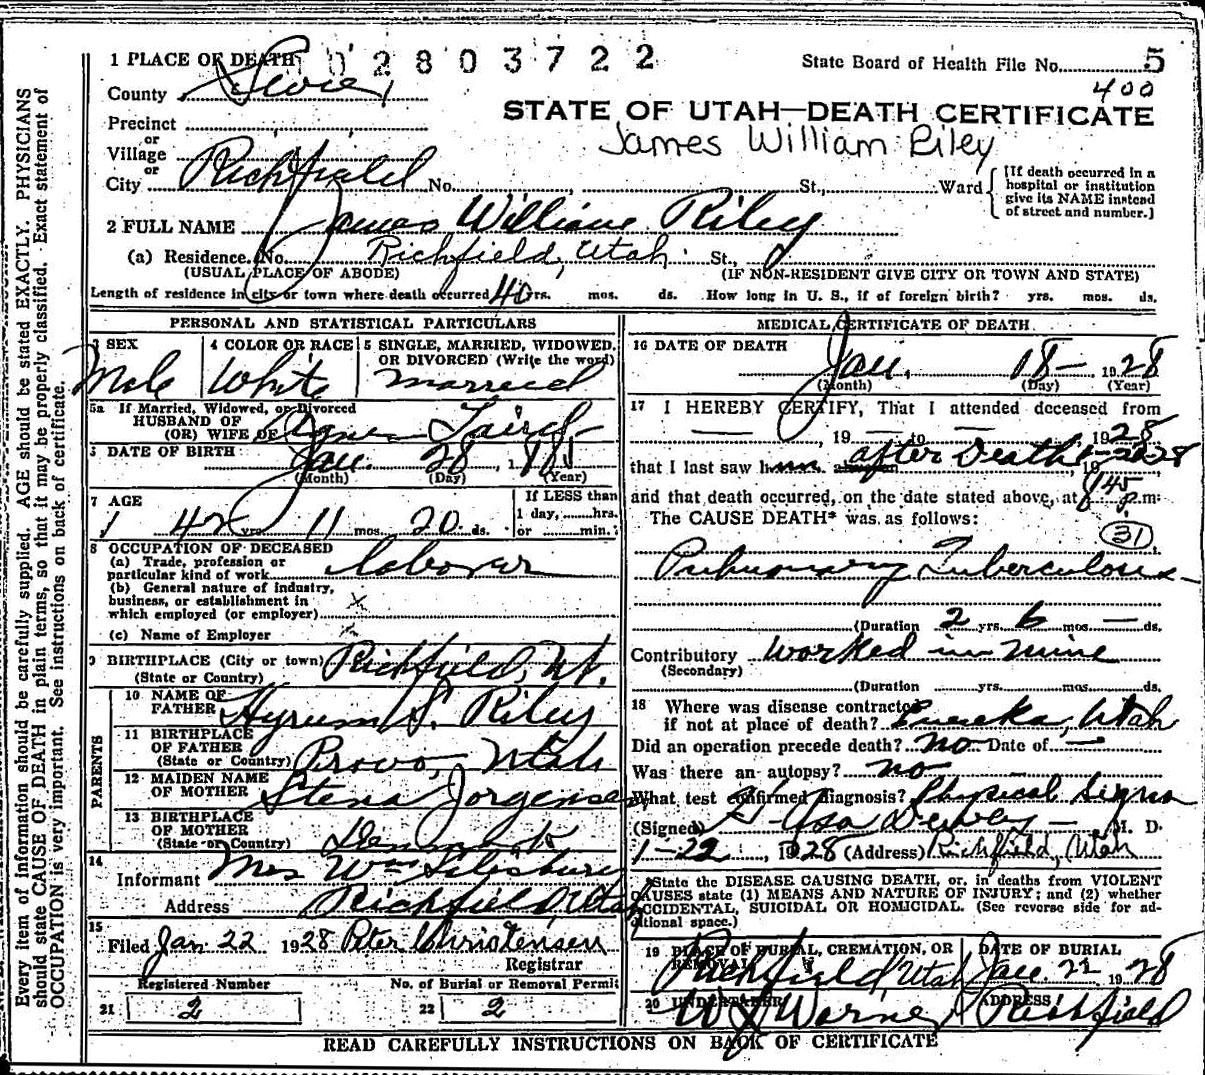 1 PLACE OF DEATH 02803722 State Board of Health File No. 5
County Sevier 400
STATE OF UTAH—DEATH CERTIFICATE
Precinct
or
James William Riley
Village
or
City Richfield No. St., Ward [If death occurred in a hospital or institution give its NAME instead of street and number.]
2 FULL NAME James William Riley
(a) Residence. No. Richfield, Utah St.,
(USUAL PLACE OF ABODE) (IF NON-RESIDENT GIVE CITY OR TOWN AND STATE)
Length of residence in city or town where death occurred 40 yrs. mos. ds. How long in U. S., if of foreign birth? yrs. mos. ds.
PERSONAL AND STATISTICAL PARTICULARS
3 SEX 4 COLOR OR RACE 5 SINGLE, MARRIED, WIDOWED, OR DIVORCED (Write the word)
Male White married
5a If Married, Widowed, or Divorced
HUSBAND OF
(OR) WIFE OF Agnes
6 DATE OF BIRTH Jan. 28, 1881
(Month) (Day) (Year)
7 AGE If LESS than
1 day, hrs.
42 yrs. 11 mos. 20 ds. or min.
8 OCCUPATION OF DECEASED
(a) Trade, profession or
particular kind of work laborer
(b) General nature of industry,
business, or establishment in
which employed (or employer) x
(c) Name of Employer
9 BIRTHPLACE (City or town) Richfield, Ut.
(State or Country)
PARENTS
10 NAME OF FATHER Hyrum S. Riley
11 BIRTHPLACE OF FATHER
(State or Country) Provo, Utah
12 MAIDEN NAME OF MOTHER Stena Jorgensen
13 BIRTHPLACE OF MOTHER
(State or Country) Denmark
14
Informant Mrs Wm
Address Richfield Utah
15
Filed Jan 22 1928 Peter Christensen
Registrar
Registered Number No. of Burial or Removal Permit
21 2 22 2
MEDICAL CERTIFICATE OF DEATH
16 DATE OF DEATH
Jan. 18— 1928
(Month) (Day) (Year)
17 I HEREBY CERTIFY, That I attended deceased from
—, 19— to — 1928
that I last saw him after Death 1-20 1928
and that death occurred, on the date stated above, at 8 45 p.m.
The CAUSE DEATH* was as follows:
31
Pulmonary Tuberculosis
(Duration 2 yrs. 6 mos — ds.
Contributory worked in mine
(Secondary)
(Duration yrs. mos. ds.
18 Where was disease contracted
if not at place of death? Eureka, Utah
Did an operation precede death? no Date of —
Was there an autopsy? no
What test confirmed diagnosis? Physical Signs
(Signed) H Asa Dewey — M. D.
1-22, 1928 (Address) Richfield, Utah
*State the DISEASE CAUSING DEATH, or, in deaths from VIOLENT
CAUSES state (1) MEANS AND NATURE OF INJURY; and (2) whether
ACCIDENTAL, SUICIDAL OR HOMICIDAL. (See reverse side for ad-
ditional space.)
19 PLACE OF BURIAL, CREMATION, OR REMOVAL DATE OF BURIAL
Richfield, Utah Jan. 22 1928
20 UNDERTAKER ADDRESS
W Warner Richfield
READ CAREFULLY INSTRUCTIONS ON BACK OF CERTIFICATE
Every item of information should be carefully supplied. AGE should be stated EXACTLY. PHYSICIANS
should state CAUSE OF DEATH in plain terms, so that it may be properly classified. Exact statement of
OCCUPATION is very important. See instructions on back of certificate.